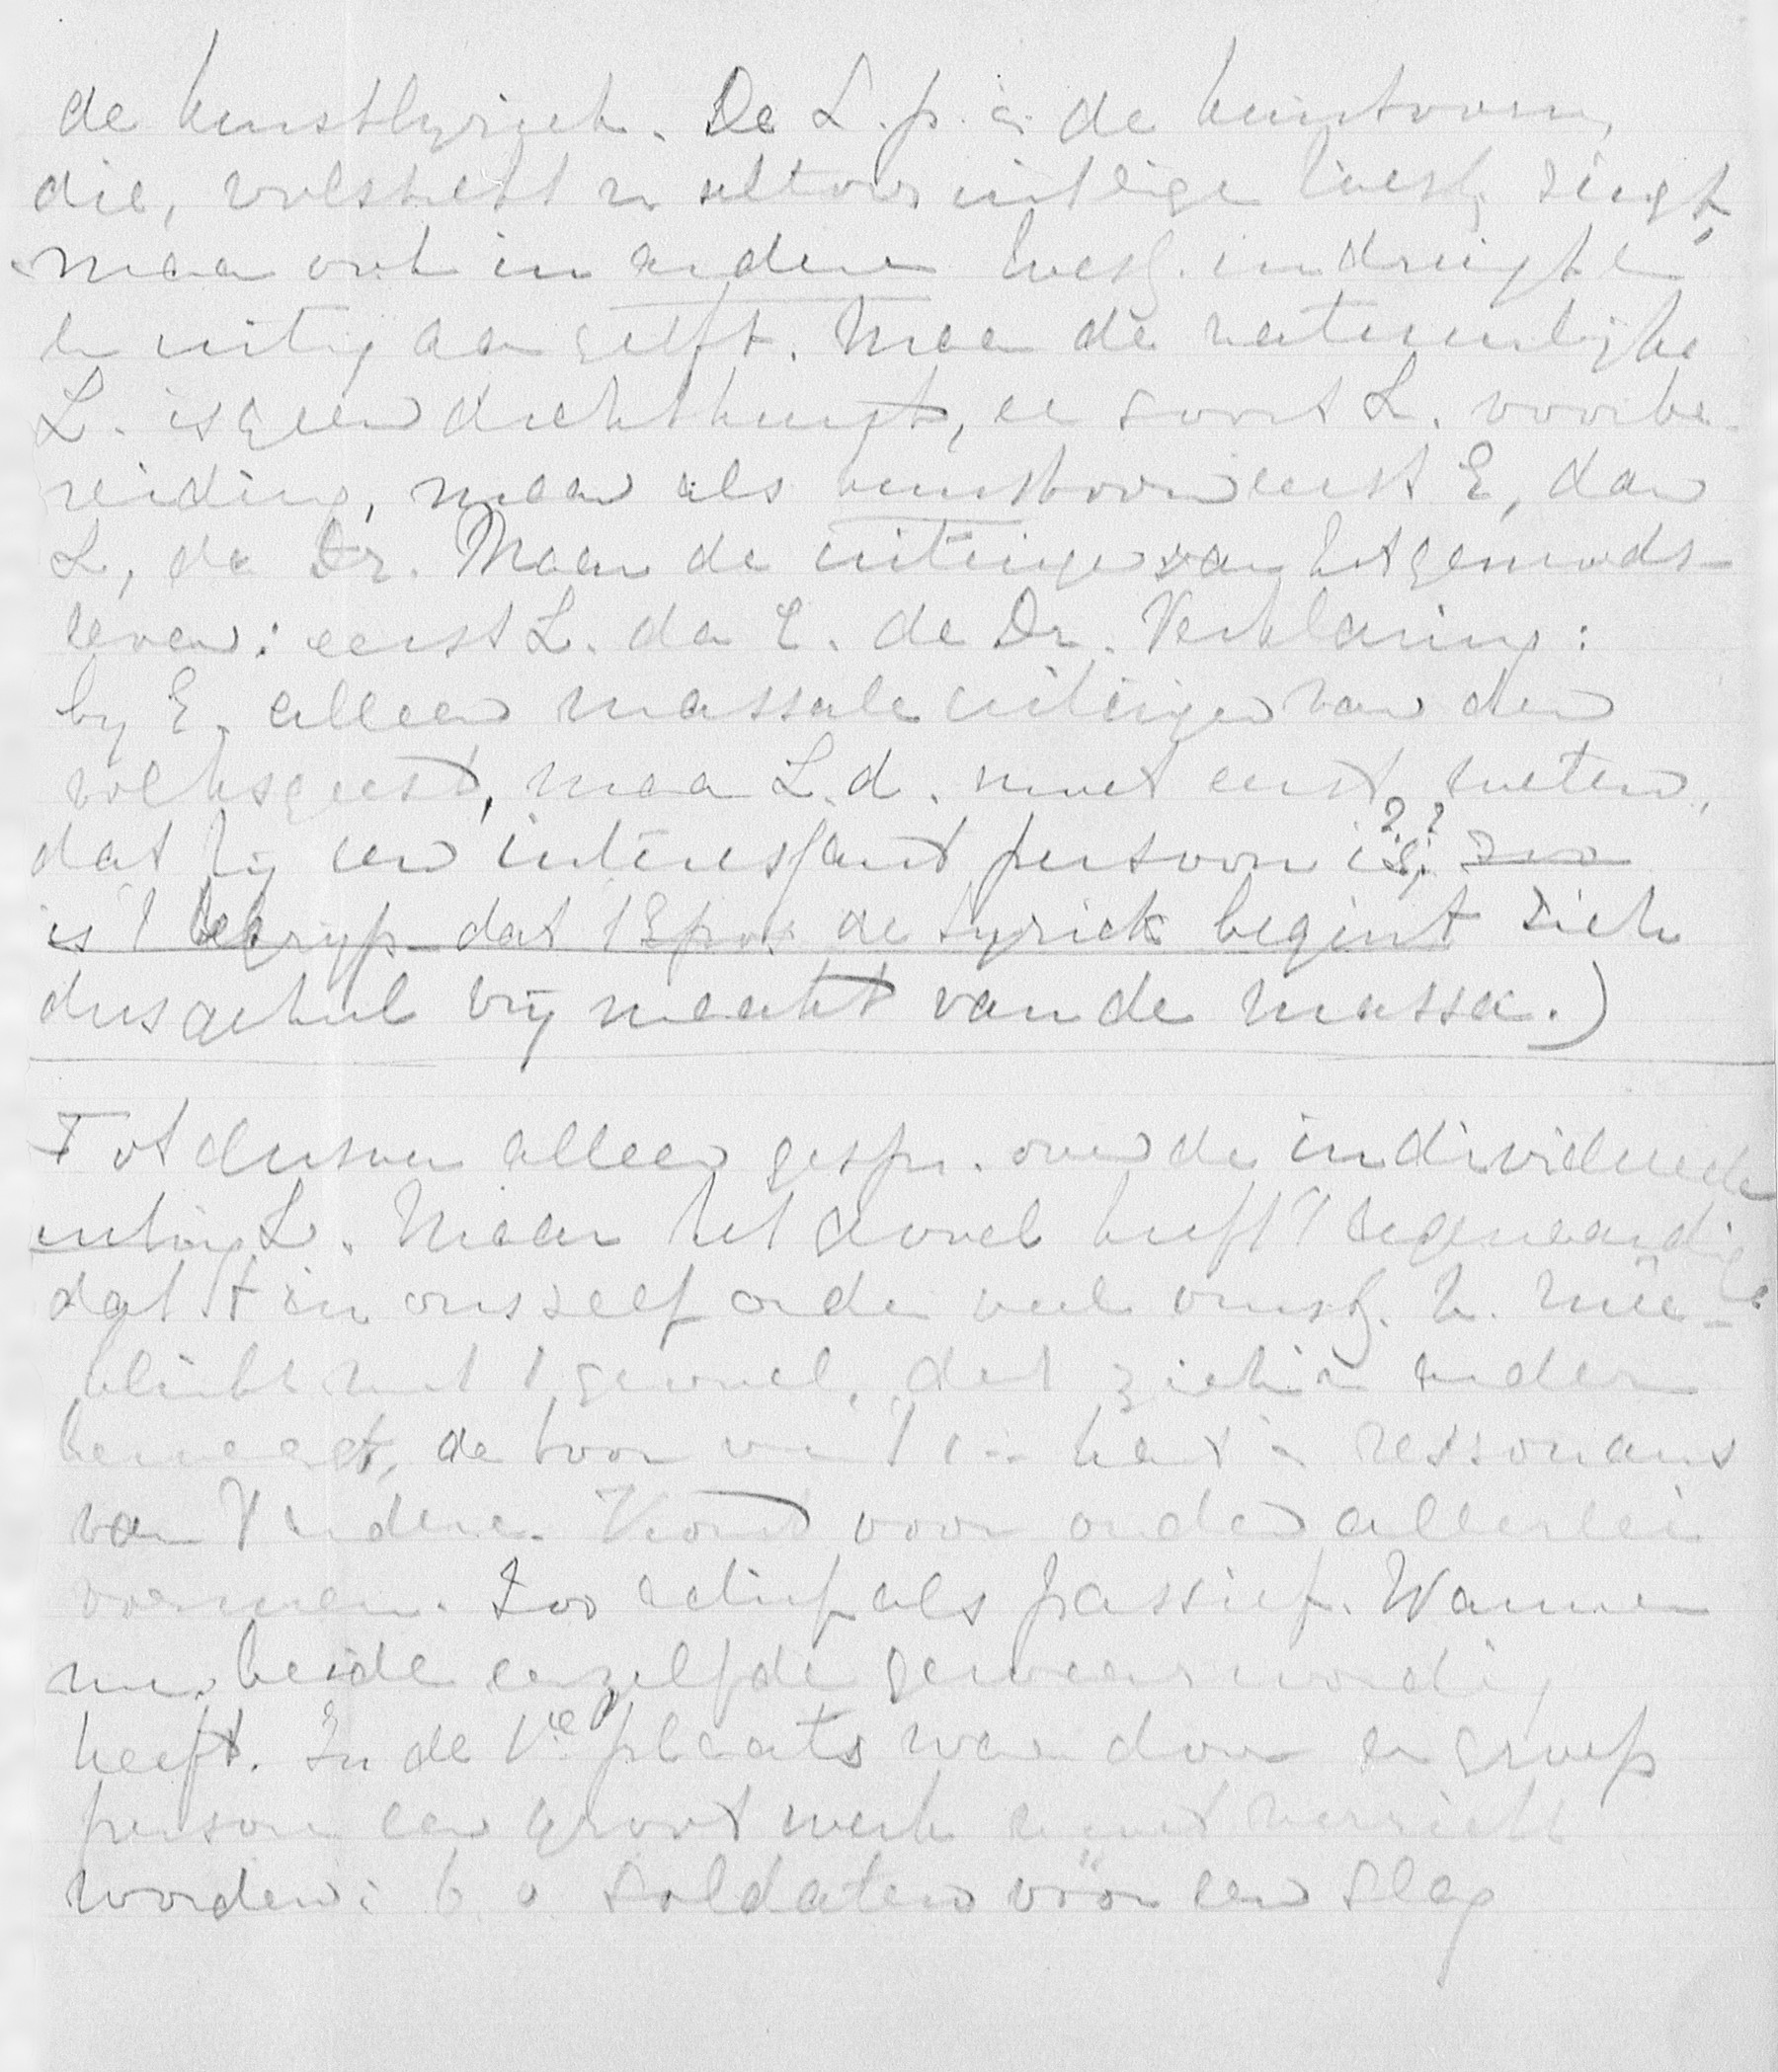 de kunstlyriek. De L. p. is de kunstvorm,
die, volstrekt n altoos uit eige singt,
maa ook in andere indringt en
er uiting aan geeft. Maar de natuurlijke
L. is geen dichtkunst, ee soort L. voorbe-
reiding, maar als kunstvorm eerst E, dan
L, da Dr. Maar de uitinge van het gemoeds-
leven: eerst L. da E. da Dr. Verklaring:
by E. alleen massale uitingen van den
volksgeest, maa L.d. moet eerst weten,
dat hij een interessant persoon is, ?? zoo
is 't begryp. dat 't Epos de Lyriek begint zich
dus geheel vrij maakt van de massa.)
Tot dusver alleen gespr. over de individueele
uiting L. Maar het gevoel heeft 't eigenaardige
dat 't in onszelf onder veel
't gevoel, dat zich in andere
beweegt, de toon resonans
van 't andere. Komt voor onder allerlei
vormen. Zoo actief als passief. Wanneer
beide eenzelfde gewaarwordi,
heeft. In de 1e plaats waar door en groep
person een groot werk moet verricht
worden: b. v. Soldaten vóór een slag